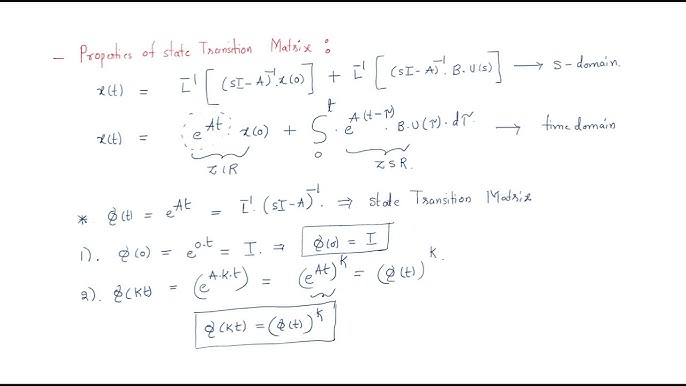 – Properties of state Transition Matrix :
x(t) = L⁻¹[(sI-A)⁻¹.x(0)] + L⁻¹[(sI-A)⁻¹.B.U(s)] → s-domain.
x(t) = e^{At}.x(0) + ∫₀ᵗ.e^{A(t-τ)}.B.U(τ).dτ. → time domain
ZIR ZSR.
* φ(t) = e^{At} = L⁻¹.(sI-A)⁻¹. ⇒ state Transition Matrix
1). φ(0) = e^{0.t} = I. ⇒ φ(0) = I
2). φ(kt) = (e^{A.k.t}) = (e^{At})^k = (φ(t))^k.
φ(kt) = (φ(t))^k